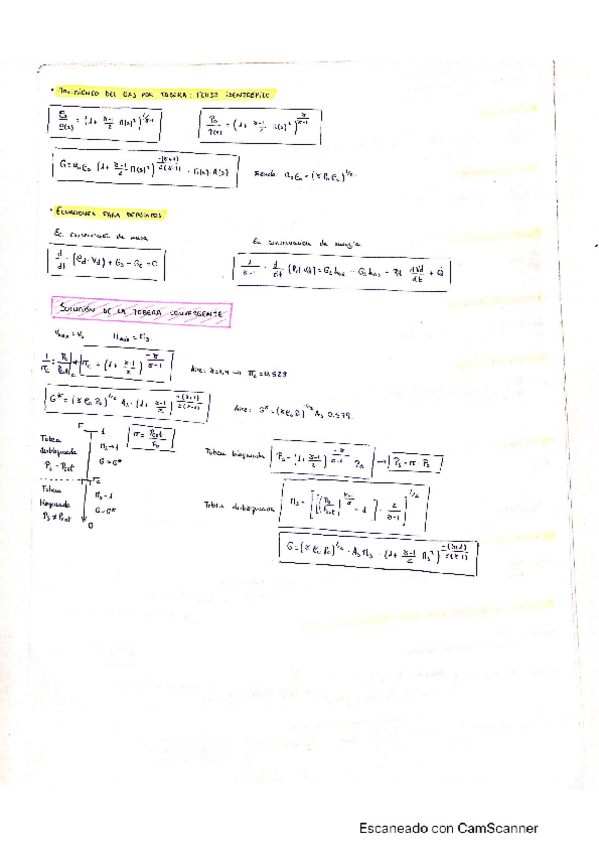 · Movimiento del gas por tobera: flujo isentrópico
ρ₀/ρ(x) = (1 + (γ-1)/2 M(x)²)^(1/(γ-1))
P₀/P(x) = (1 + (γ-1)/2 M(x)²)^(γ/(γ-1))
G = a₀ρ₀ (1 + (γ-1)/2 M(x)²)^(-(γ+1)/(2(γ-1))) · M(x) · A(x)
siendo a₀ρ₀ = (γ P₀ ρ₀)^(1/2)
· Ecuaciones para depósitos
Ec conservación de masa
d/dt (ρd · Vd) + Gs - Ge = 0
Ec conservación de energía
1/(γ-1) · d/dt (Pd Vd) = Ge h₀e - Gs h₀s - Pd dVd/dt + Q̇
Solución de la tobera convergente
= (1 + (γ-1)/2)^(-γ/(γ-1))
Aire: γ=1,4 → πc = 0.528
G* = (γ ρ₀ P₀)^(1/2) As · (1 + (γ-1)/2)^(-(γ+1)/(2(γ-1)))
Aire: G* = (γ ρ₀ P₀)^(1/2) As 0.579
π
1
π = Pext/P₀
Tobera desbloqueada
Ps = Pext
Ms < 1
G < G*
πc
Tobera bloqueada
Ps ≠ Pext
Ms = 1
G = G*
0
Tobera bloqueada
Ps = (1 + (γ-1)/2)^(-γ/(γ-1)) P₀
Tobera desbloqueada
G = (γ ρ₀ P₀)^(1/2) · As Ms · (1 + (γ-1)/2 Ms²)^(-(γ+1)/(2(γ-1)))
Escaneado con CamScanner